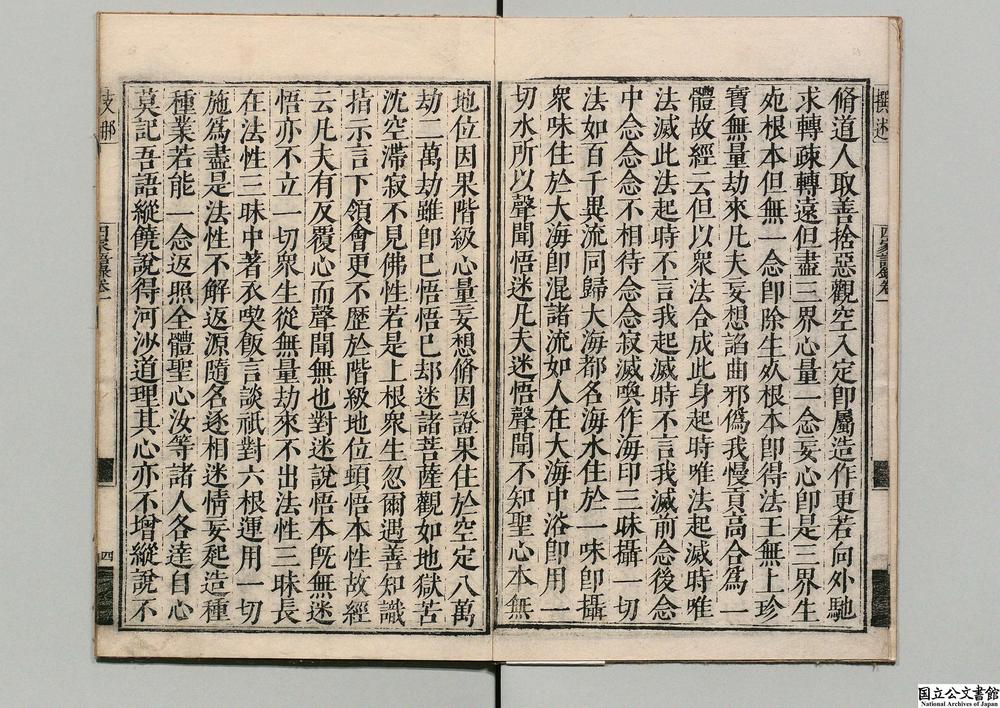 撰述
四家語錄卷一
脩道人取善捨惡觀空入定即屬造作更若向外馳
求轉疎轉遠但盡三界心量一念妄心即是三界生
死根本但無一念即除生死根本即得法王無上珍
寶無量劫來凡夫妄想諂曲邪僞我慢貢高合爲一
體故經云但以衆法合成此身起時唯法起滅時唯
法滅此法起時不言我起滅時不言我滅前念後念
中念念念不相待念念寂滅喚作海印三昧攝一切
法如百千異流同歸大海都名海水住於一味即攝
衆味住於大海即混諸流如人在大海中浴即用一
切水所以聲聞悟迷凡夫迷悟聲聞不知聖心本無
地位因果階級心量妄想脩因證果住於空定八萬
劫二萬劫雖即已悟悟已却迷諸菩薩觀如地獄苦
沈空滯寂不見佛性若是上根衆生忽爾遇善知識
指示言下領會更不歷於階級地位頓悟本性故經
云凡夫有反覆心而聲聞無也對迷說悟本既無迷
悟亦不立一切衆生從無量劫來不出法性三昧長
在法性三昧中著衣喫飯言談祇對六根運用一切
施爲盡是法性不解返源隨名逐相迷情妄起造種
種業若能一念返照全體聖心汝等諸人各達自心
莫記吾語縱饒說得河沙道理其心亦不增縱說不
支那
四家語錄卷一
四
国立公文書館
National Archives of Japan